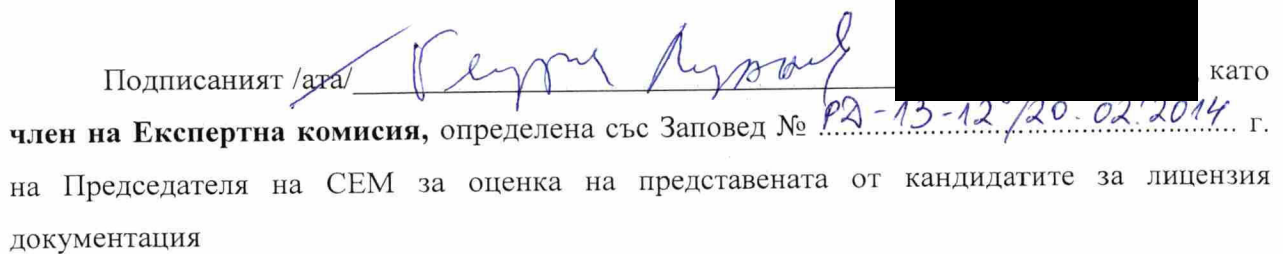 Подписаният /ата/ , като
член на Експертна комисия, определена със Заповед № РД-13-12/20.02.2014 г.
на Председателя на СЕМ за оценка на представената от кандидатите за лицензия
документация